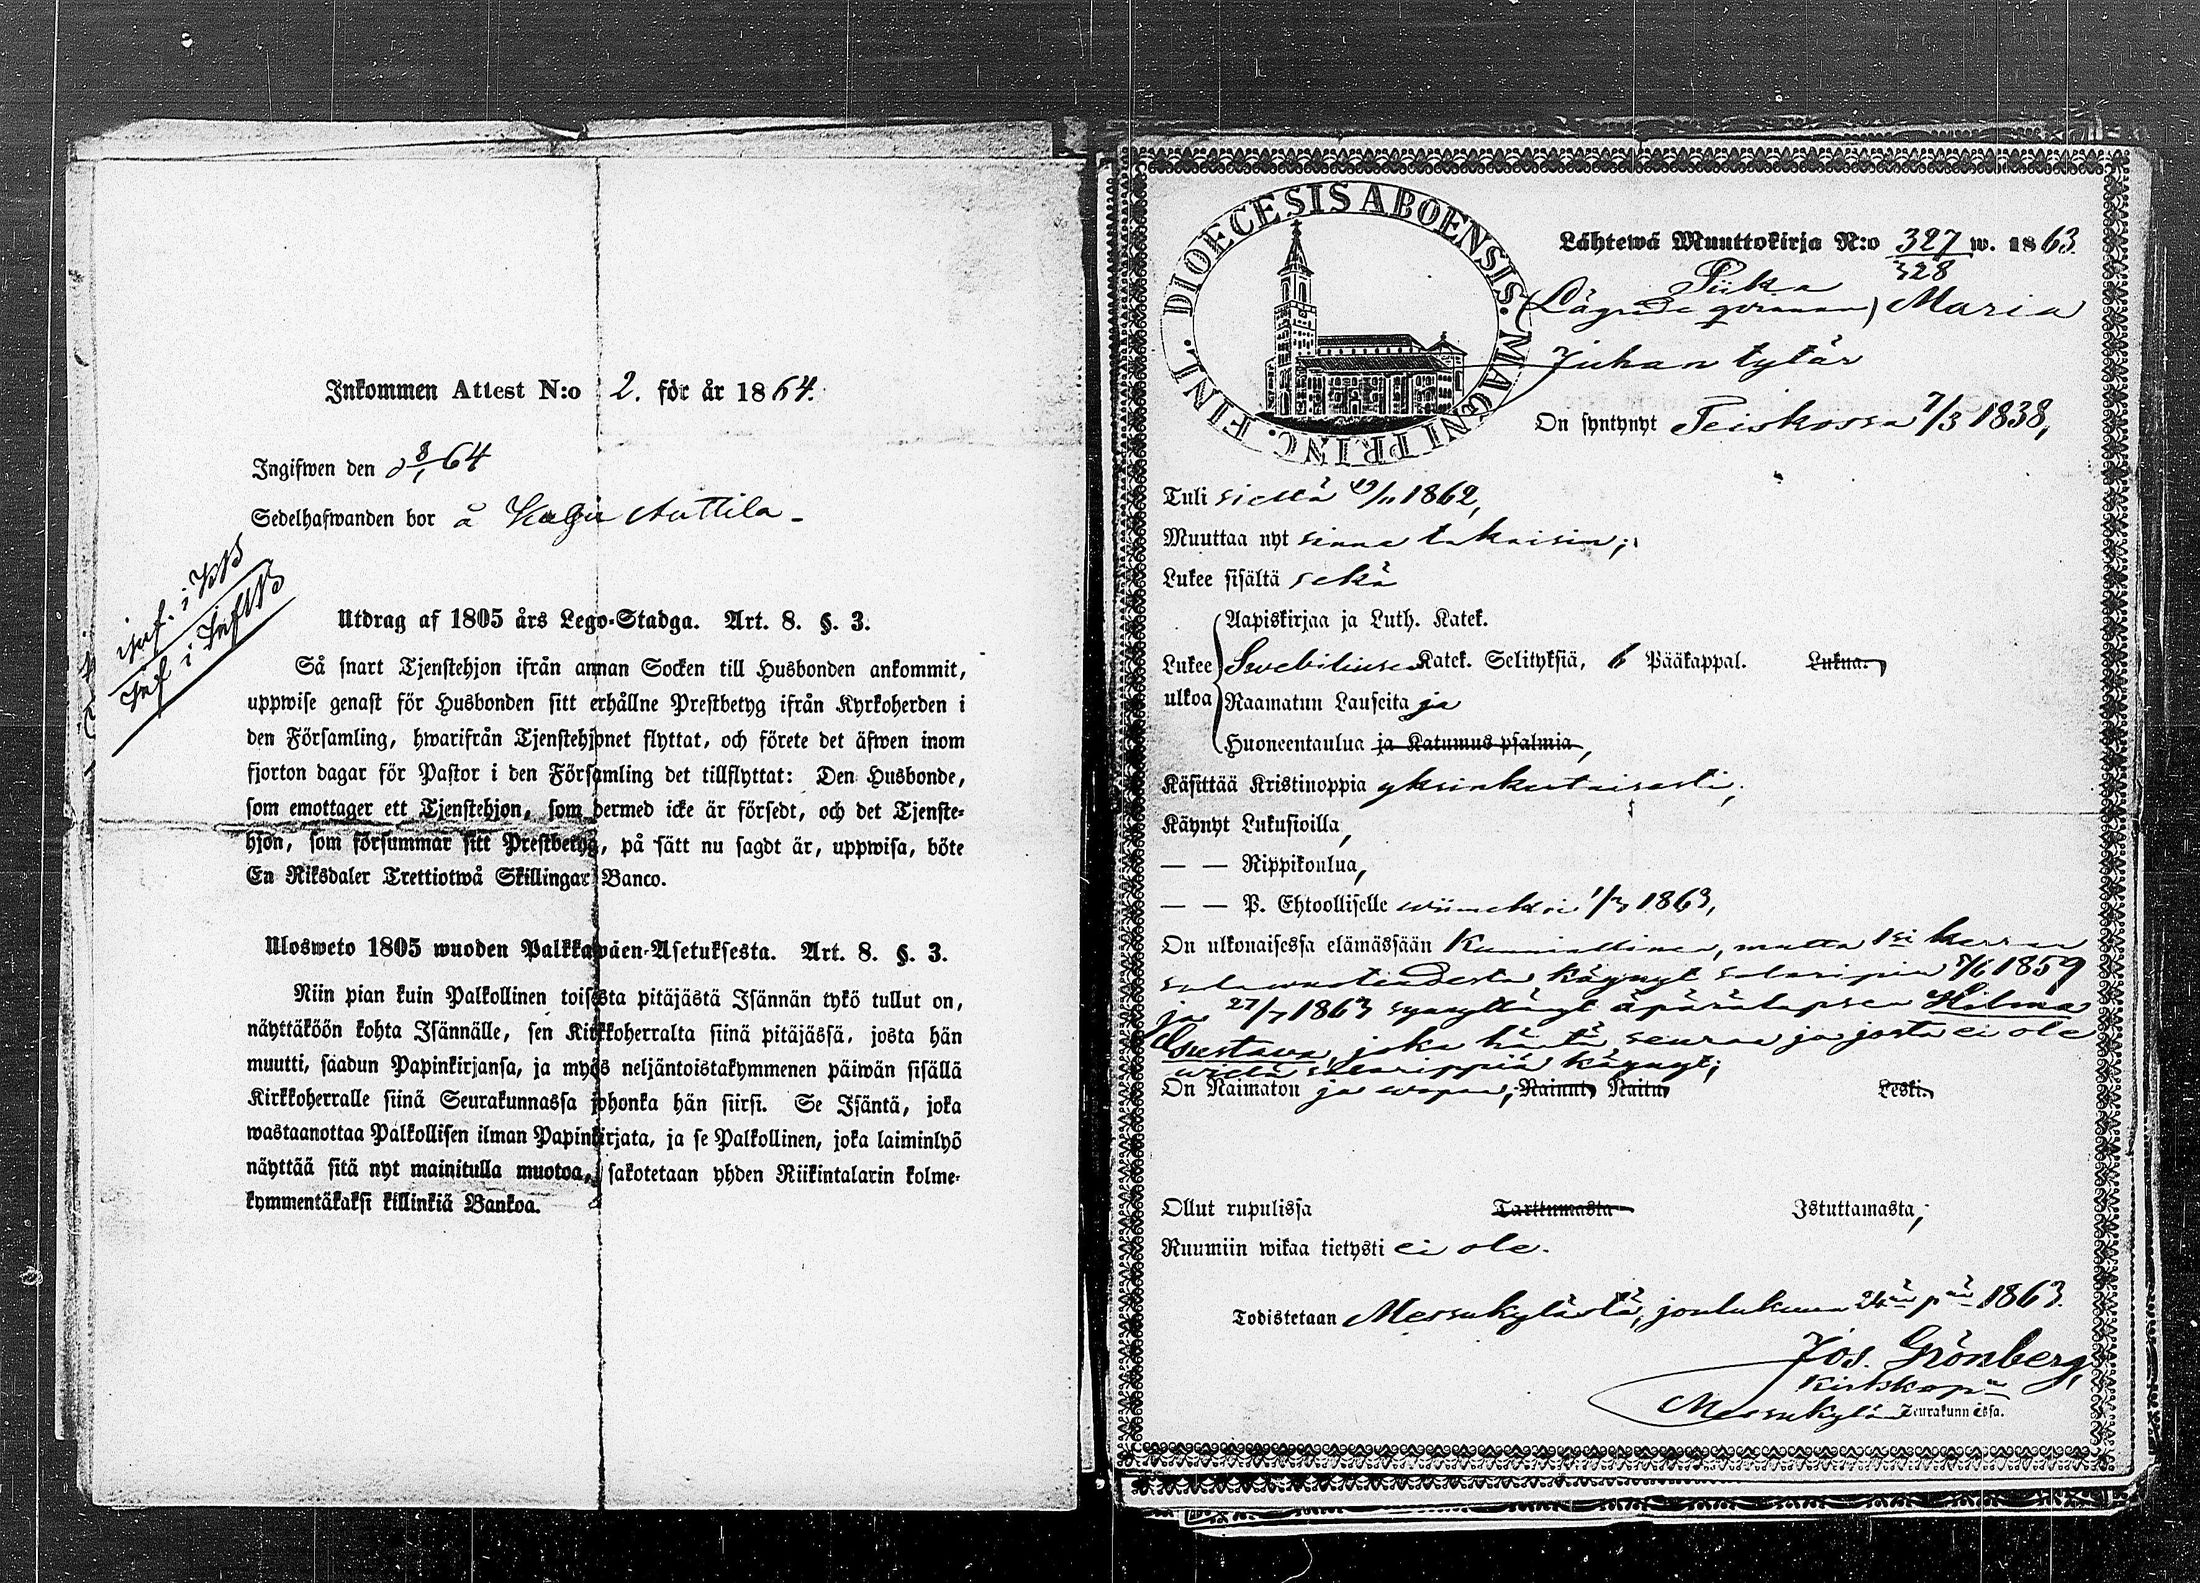 Inkommen Attest N:o 2. för år 1864.
Ingifwen den d 8/1 64
Sedelhafwanden bor å Kalju Anttila -
inf. i KB
Inf i InflB
Utdrag af 1805 års Lego-Stadga. Art. 8. §. 3.
Så snart Tjenstehjon ifrån annan Socken till Husbonden ankommit,
uppwise genast för Husbonden sitt erhållne Prestbetyg ifrån Kyrkoherden i
den Församling, hwarifrån Tjenstehjonet flyttat, och förete det äfwen inom
fjorton dagar för Pastor i den Församling det tillflyttat: Den Husbonde,
som emottager ett Tjenstehjon, som dermed icke är försedt, och det Tjenste-
hjon, som försummar sitt Prestbetyg, på sätt nu sagdt är, uppwisa, böte
En Riksdaler Trettiotwå Skillingar Banco.
Ulosweto 1805 wuoden Palkkawäen-Asetuksesta. Art. 8. §. 3.
Niin pian kuin Palkollinen toisesta pitäjästä Isännän tykö tullut on,
näyttäköön kohta Isännälle, sen Kirkkoherralta siinä pitäjässä, josta hän
muutti, saadun Papinkirjansa, ja myös neljäntoistakymmenen päiwän sisällä
Kirkkoherralle siinä Seurakunnassa johonka hän siirsi. Se Isäntä, joka
wastaanottaa Palkollisen ilman Papinkirjata, ja se Palkollinen, joka laiminlyö
näyttää sitä nyt mainitulla muotoa, sakotetaan yhden Riikintalarin kolme-
kymmentäkaksi killinkiä Bankoa.
DIOECESIS ABOENSIS. MAGNI PRINC. FINL.
Lähtewä Muuttokirja N:o 327 w. 1863.
328
Piika
(Lägrade qvinnan) Maria
Juhan tytär
On syntynyt Teiskossa 7/3 1838,
Tuli sieltä 19/11 1862,
Muuttaa nyt sinne takaisin;
Lukee sisältä sekä
Aapiskirjaa ja Luth. Katek.
Lukee ulkoa Swebiliusen Katek. Selityksiä, 6 Pääkappal. Lukua.,
Raamatun Lauseita ja
Huoneentaulua ja Katumus psalmia,
Käsittää Kristinoppia yksinkertaisesti,
Käynyt Lukusioilla,
— — Rippikoulua,
— — P. Ehtoolliselle wiimeksi 1/3 1863,
On ulkonaisessa elämässään Kunniallinen, mutta 1si kerran
salawuoteudesta käynyt salaripin 7/6 1859
ja 27/7 1863 synnyttänyt äpärälapsen Hilma
Gustava, joka häntä seuraa ja josta ei ole
wielä salarippiä käynyt;
On Naimaton ja wapaa, Nainut, Naitu, Leski.,
Ollut rupulissa Tarttumasta Istuttamasta,
Ruumiin wikaa tietysti ei ole.
Todistetaan Messukylästä, joulukuun 24nä pnä 1863.
Jos. Grönberg,
Kirkkoherra
Messukylän Seurakunnassa.